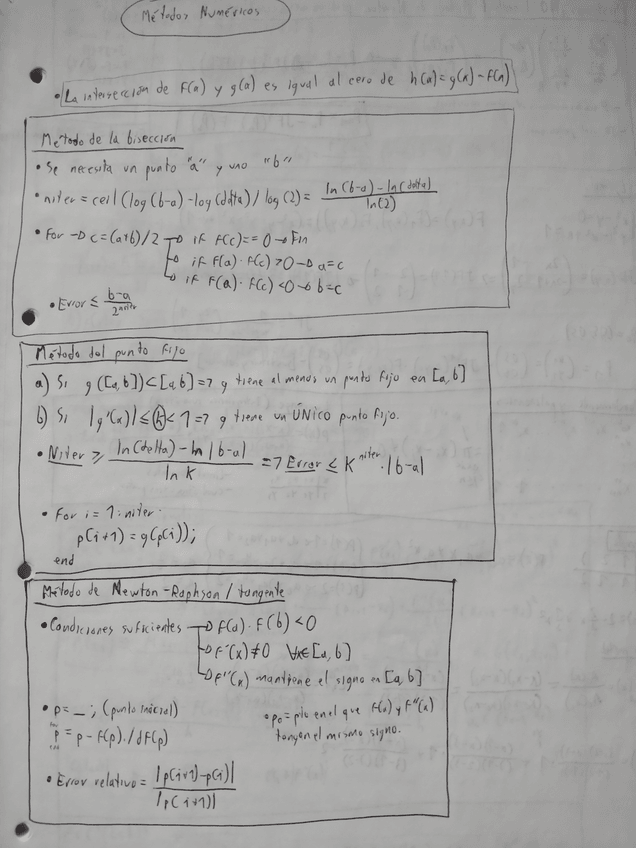 Métodos Numéricos
• La intersección de F(a) y g(a) es igual al cero de h(a)=g(x)-F(x)
Metodo de la bisección
• Se necesita un punto "a" y uno "b"
• niter = ceil (log(b-a)-log(delta)/log(2)) = ln(b-a)-ln(delta) / ln(2)
• For → c=(a+b)/2 → if F(c)==0 → Fin
→ if F(a)·F(c)>0 → a=c
→ if F(a)·F(c)<0 → b=c
• Error ≤ b-a / 2^niter
Método del punto Fijo
a) Si g([a,b])⊂[a,b] => g tiene al menos un punto fijo en [a,b]
b) Si |g'(x)| ≤ k < 1 => g tiene un ÚNICO punto fijo.
• Niter ≥ ln(delta)-ln|b-a| / ln K => Error ≤ K^niter·|b-a|
• For i = 1:niter
p(i+1) = g(p(i));
end
Método de Newton-Raphson / tangente
• Condiciones suficientes → F(a)·F(b)<0
→ F'(x)≠0 ∀x∈[a,b]
→ F''(x) mantiene el signo en [a,b]
• p=_; (punto inicial)
• p0=pto en el que F(x) y F''(x)
tengan el mismo signo.
p = p - F(p)./dF(p)
• Error relativo = |p(i+1)-p(i)| / |p(i+1)|